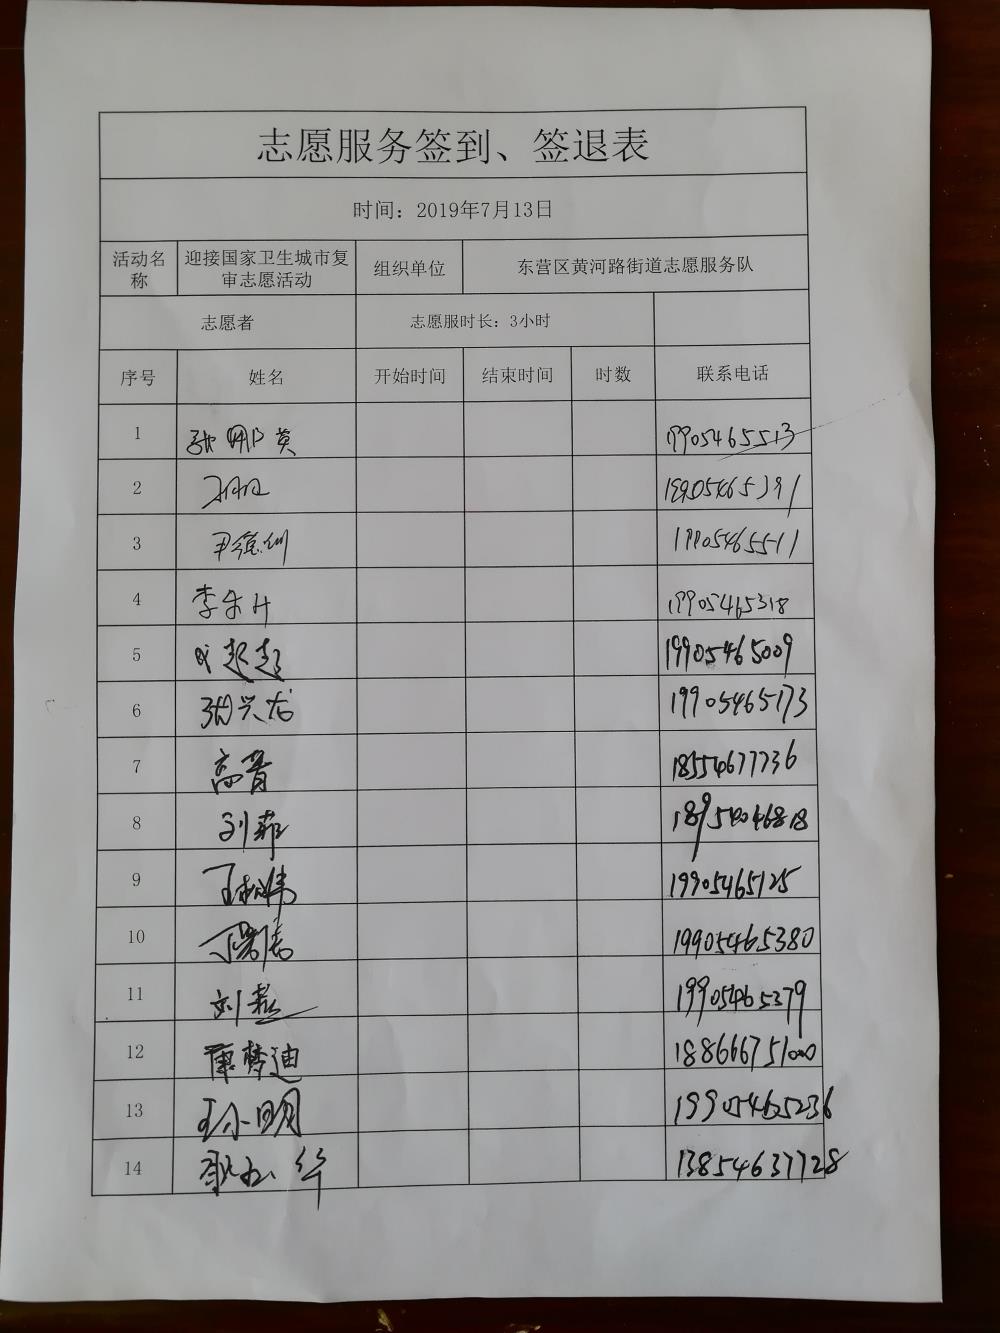 志愿服务签到、签退表
时间：2019年7月13日
活动名称 迎接国家卫生城市复审志愿活动 组织单位 东营区黄河路街道志愿服务队
志愿者 志愿服时长：3小时
序号 姓名 开始时间 结束时间 时数 联系电话
1 张娜英 19905465513
2
3 尹德训 19905465511
4 李乐升 19905465318
5 赵超 19905465009
6 张兴龙 19905465173
7 高晋 18554677736
8 刘菲 18954046818
9 王松伟 19905465125
10 19905465380
11 刘燕 19905465379
12 康梦迪 18866751000
13 王小明 19905465236
14 华 13854637728